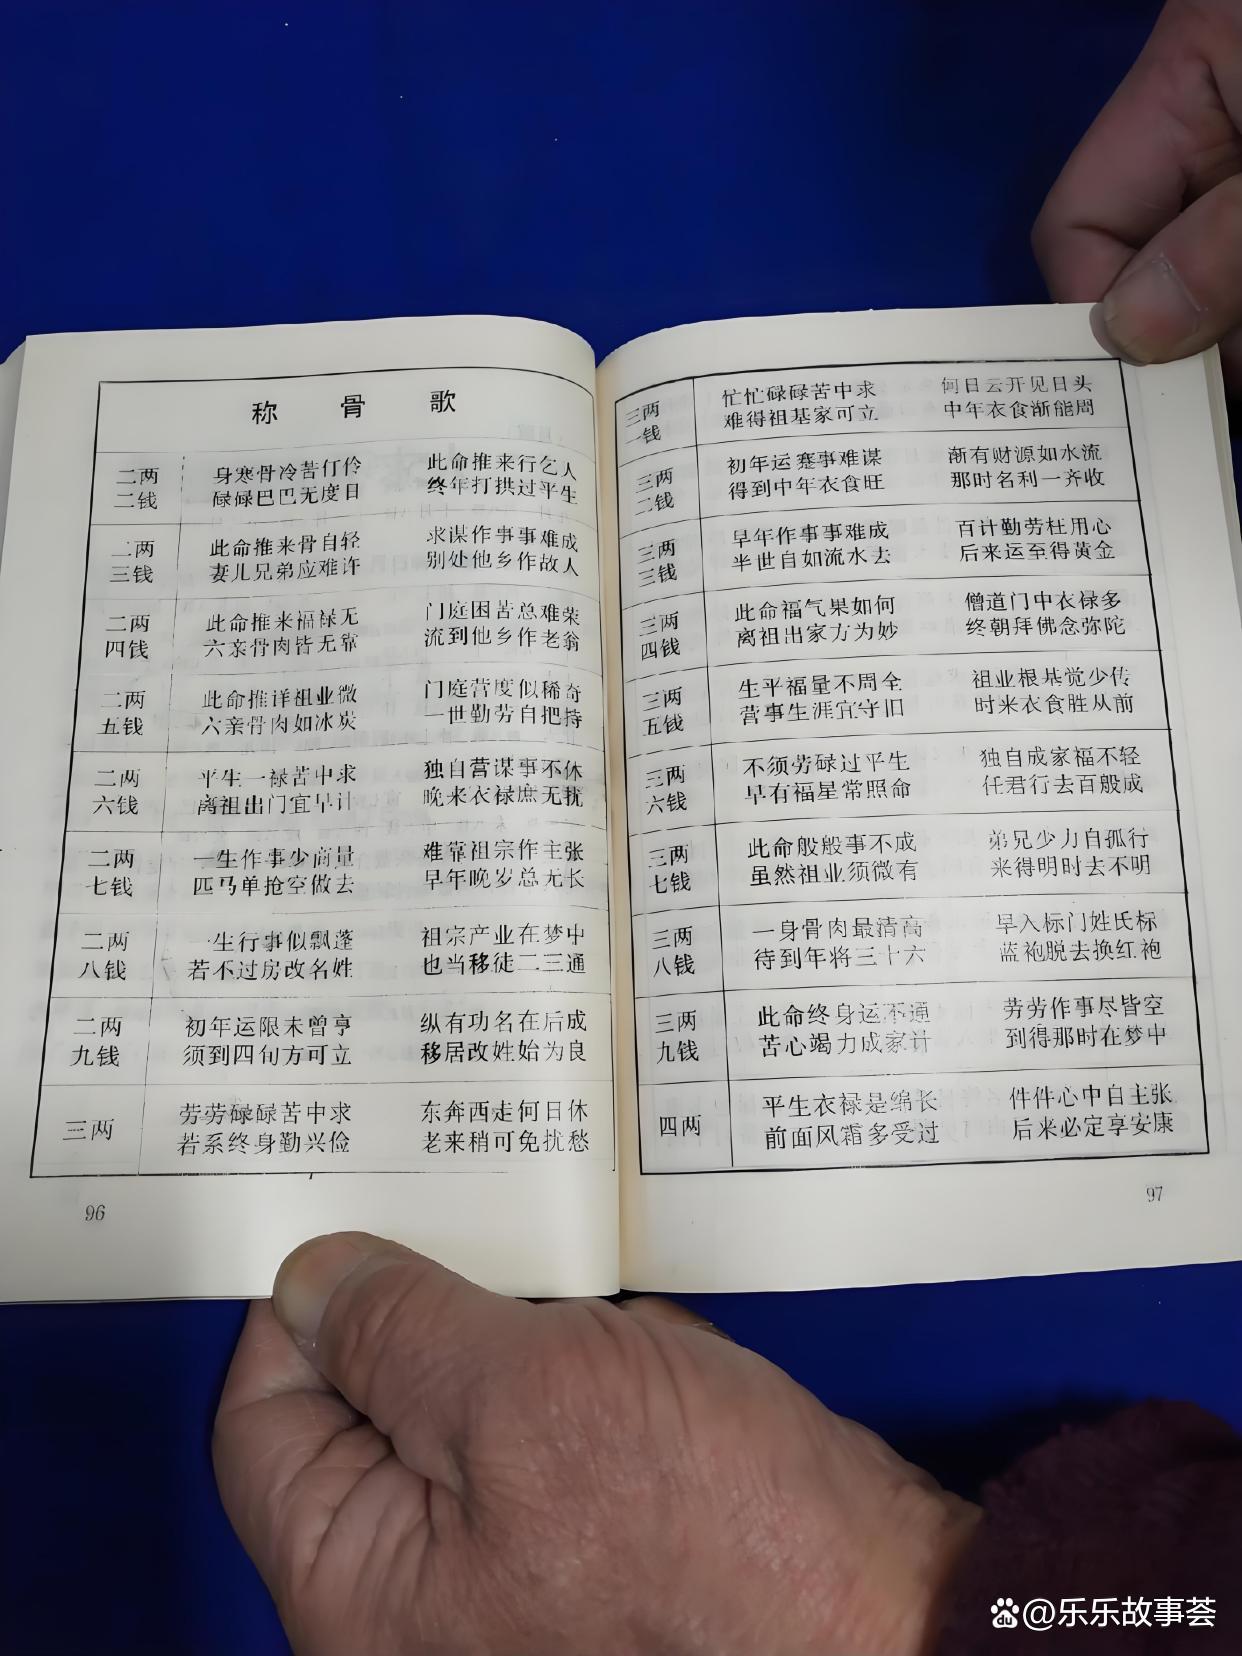 称 骨 歌
二两
二钱
身寒骨冷苦仃伶 此命推来行乞人
碌碌巴巴无度日 终年打拱过平生
二两
三钱
此命推来骨自轻 求谋作事事难成
妻儿兄弟应难许 别处他乡作故人
二两
四钱
此命推来福禄无 门庭困苦总难荣
六亲骨肉皆无靠 流到他乡作老翁
二两
五钱
此命推详祖业微 门庭营度似稀奇
六亲骨肉如冰炭 一世勤劳自把持
二两
六钱
平生一禄苦中求 独自营谋事不休
离祖出门宜早计 晚来衣禄庶无扰
二两
七钱
一生作事少商量 难靠祖宗作主张
匹马单抢空做去 早年晚岁总无长
二两
八钱
一生行事似飘蓬 祖宗产业在梦中
若不过房改名姓 也当移徒二三通
二两
九钱
初年运限未曾亨 纵有功名在后成
须到四旬方可立 移居改姓始为良
三两
劳劳碌碌苦中求 东奔西走何日休
若系终身勤兴俭 老来稍可免扰愁
96
三两
一钱
忙忙碌碌苦中求 何日云开见日头
难得祖基家可立 中年衣食渐能周
三两
二钱
初年运蹇事难谋 渐有财源如水流
得到中年衣食旺 那时名利一齐收
三两
三钱
早年作事事难成 百计勤劳枉用心
半世自如流水去 后来运至得黄金
三两
四钱
此命福气果如何 僧道门中衣禄多
离祖出家方为妙 终朝拜佛念弥陀
三两
五钱
生平福量不周全 祖业根基觉少传
营事生涯宜守旧 时来衣食胜从前
三两
六钱
不须劳碌过平生 独自成家福不轻
早有福星常照命 任君行去百般成
三两
七钱
此命般般事不成 弟兄少力自孤行
虽然祖业须微有 来得明时去不明
三两
八钱
一身骨肉最清高 早入标门姓氏标
待到年将三十六 蓝袍脱去换红袍
三两
九钱
此命终身运不通 劳劳作事尽皆空
苦心竭力成家计 到得那时在梦中
四两
平生衣禄是绵长 件件心中自主张
前面风霜多受过 后来必定享安康
97
du @乐乐故事荟